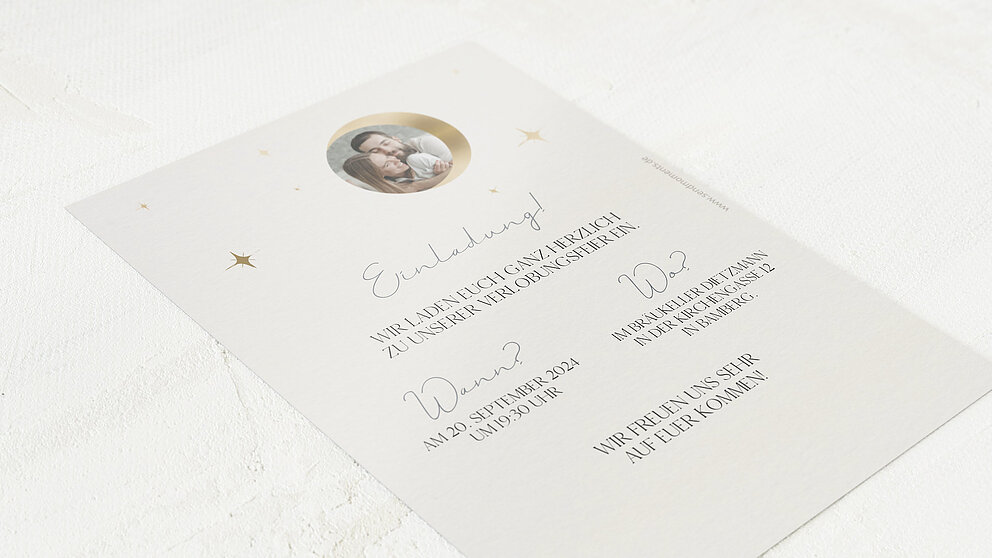 Einladung!
WIR LADEN EUCH GANZ HERZLICH
ZU UNSERER VERLOBUNGSFEIER EIN.
Wann?
AM 20. SEPTEMBER 2024
UM 19:30 UHR
Wo?
IM BRÄUKELLER DIETZMANN
IN DER KIRCHENGASSE 12
IN BAMBERG.
WIR FREUEN UNS SEHR
AUF EUER KOMMEN!
www.sendmoments.de